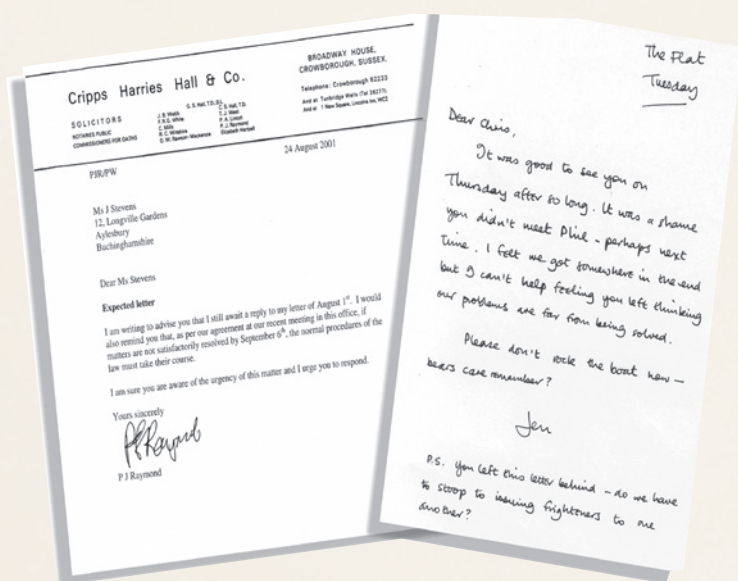 Cripps Harries Hall & Co.
SOLICITORS
NOTARIES PUBLIC
COMMISSIONERS FOR OATHS
BROADWAY HOUSE,
CROWBOROUGH, SUSSEX.
Telephone: Crowborough
And at Tunbridge Wells
And at 1 New Square, Lincolns Inn, WC2
24 August 2001
PJR/PW
Ms J Stevens
12, Longville Gardens
Aylesbury
Buchinghamshire
Dear Ms Stevens
Expected letter
I am writing to advise you that I still await a reply to my letter of August 1st. I would
also remind you that, as per our agreement at our recent meeting in this office, if
matters are not satisfactorily resolved by September 6th, the normal procedures of the
law must take their course.
I am sure you are aware of the urgency of this matter and I urge you to respond.
Yours sincerely
P J Raymond
The Flat
Tuesday
Dear Chris,
It was good to see you on
Thursday after so long. It was a shame
you didn't meet Phil - perhaps next
time. I felt we got somewhere in the end
but I can't help feeling you left thinking
our problems are far from being solved.
Please don't rock the boat now -
bears care remember?
Jen
P.S. you left this letter behind - do we have
to stoop to issuing frighteners to one
another?